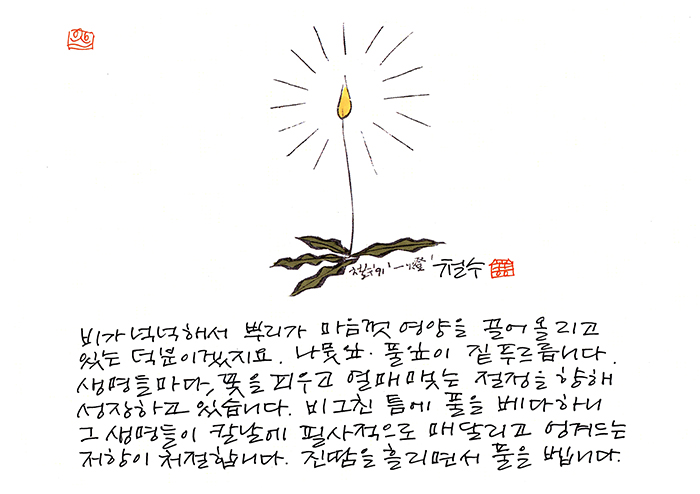 철수 91 '一燈' 철수
비가 넉넉해서 뿌리가 마음껏 영양을 끌어 올리고
있는 덕분이겠지요. 나뭇잎·풀잎이 짙푸르릅니다.
생명들마다, 꽃을 피우고 열매 맺는 절정을 향해
성장하고 있습니다. 비그친 틈에 풀을 베다하니
그 생명들이 칼날에 필사적으로 매달리고 엉겨드는
저항이 처절합니다. 진땀을 흘리면서 풀을 벱니다.